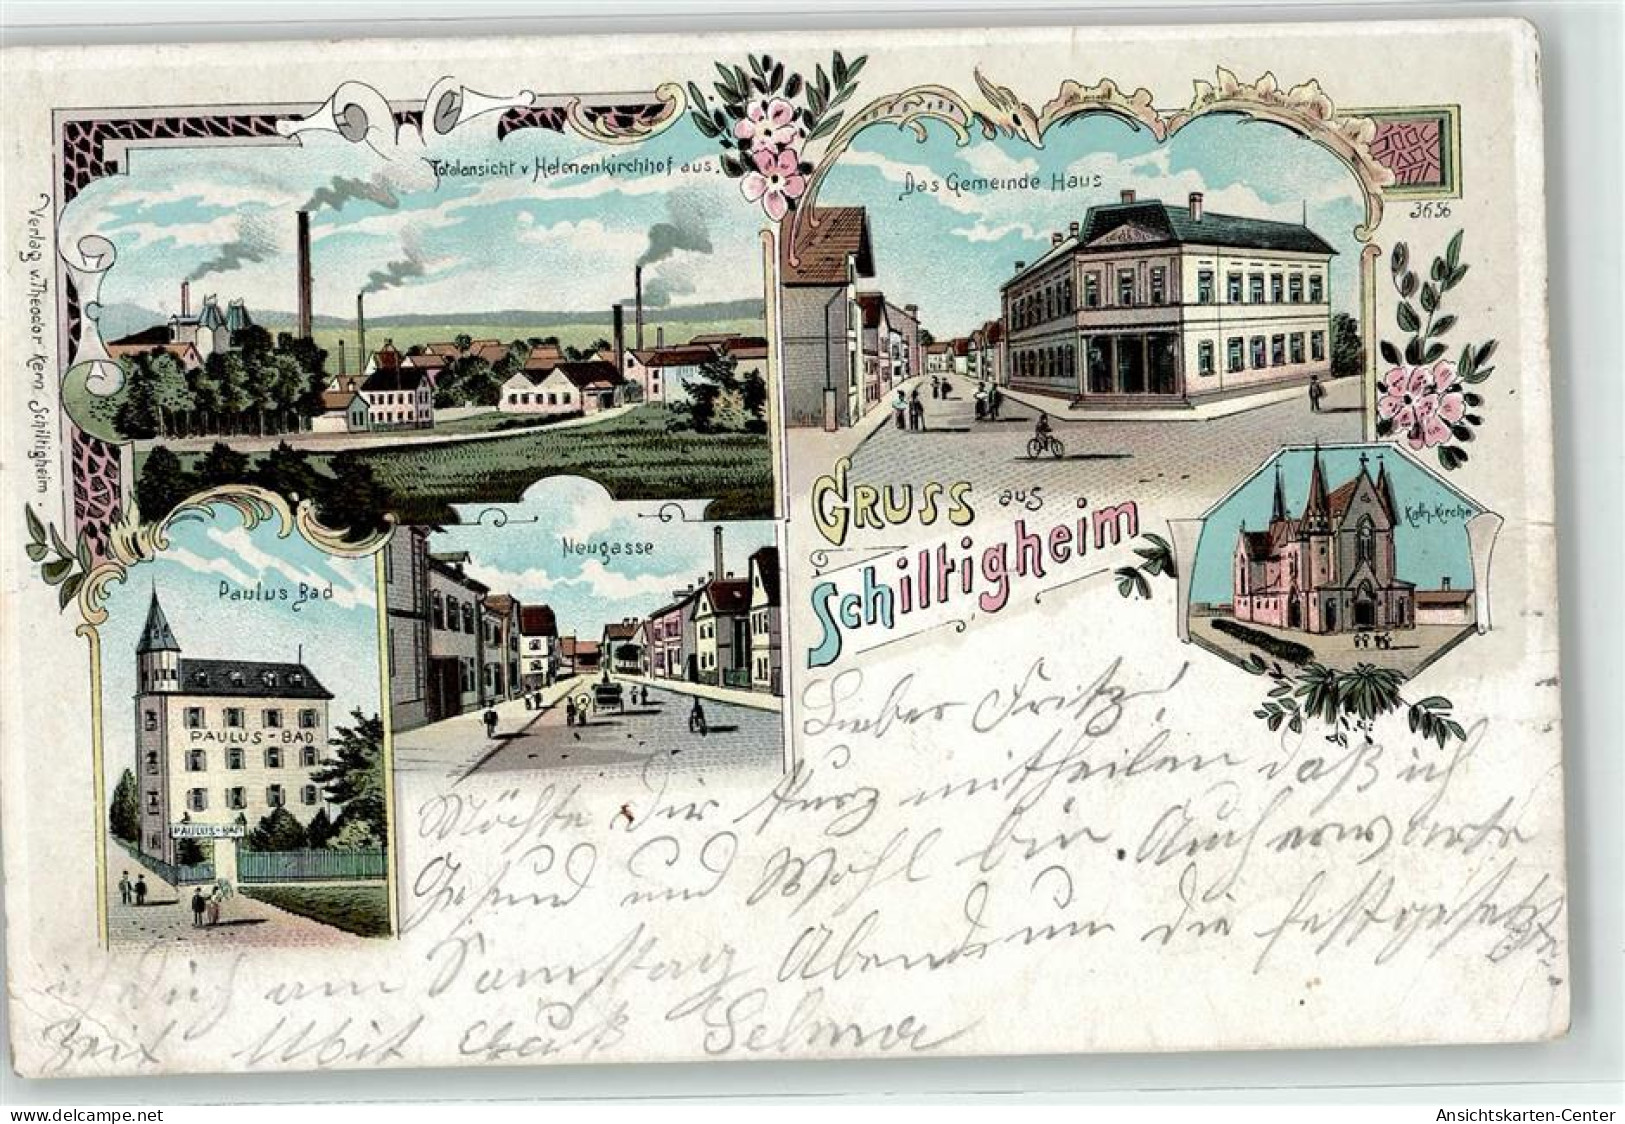 Totalansicht v Helenenkirchhof aus.
Das Gemeinde Haus
3656
Verlag v. Theodor Kern Schiltigheim.
GRUSS aus
Schiltigheim
Kath. Kirche
Neugasse
Paulus Bad
PAULUS-BAD
PAULUS-BAD
Lieber Fritz!
Möchte Dir kurz mittheilen daß ich
Gesund und Wohl bin. Auch erwarte
ich dich am Samstag Abend um die festgesetzte
Zeit Mit Gruß Selma
Ansichtskarten-Center